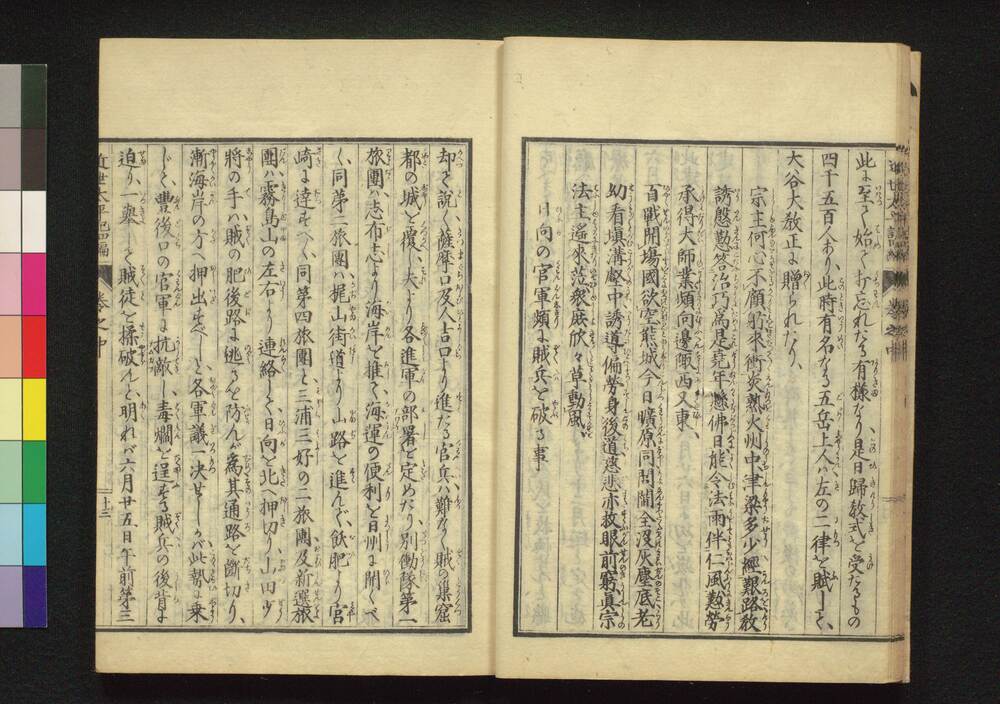 此に至り始て打忘れたる有様なり、是日歸敎式を受たるもの
四千五百人あり、此時有名なる五岳上人ハ左の二律を賦して、
大谷大敎正に贈られたり、
宗主何心不顧躬來衝炎熱火州中津梁多少經艱路敎
誘慇懃答治巧爲是堯年懸佛日能令法雨伴仁風懃勞
承得大師業頻向邊陬西又東、
百戰開場國欲空熊城今日曠原同閭閻全沒灰塵底老
幼看塡溝壑中誘導俑勞身後道慈悲亦救眼前窮眞宗
法主遙來莅衆庶欣々草動風
日向の官軍頻に賊兵を破る事
却て説く薩摩口及人吉口より進たる官兵ハ難なく賊の巢窟
都の城を覆し、夫より各進軍の部署を定めたり、別働隊第一
旅團ハ志布志より海岸を推て海運の便利を日州に開くべ
く、同第二旅團ハ梶山街道より山路を進んで、飫肥より宮
崎に達すべく、同第四旅團と三浦三好の二旅團及新撰旅
團ハ霧島山の左右より連絡して日向を北へ押切り、山田少
將の手ハ賊の肥後路に逃るを防んが爲其通路を斷切り、
漸海岸の方へ押出すべしと各軍議一决せしかバ此勢に乗
じて、豊後口の官軍に抗敵し、毒爛を逞する賊兵の後背に
迫り、一擧して賊徒を揉破んと明れバ六月廿五日午前第三
近世太平記四編
卷之中
十三